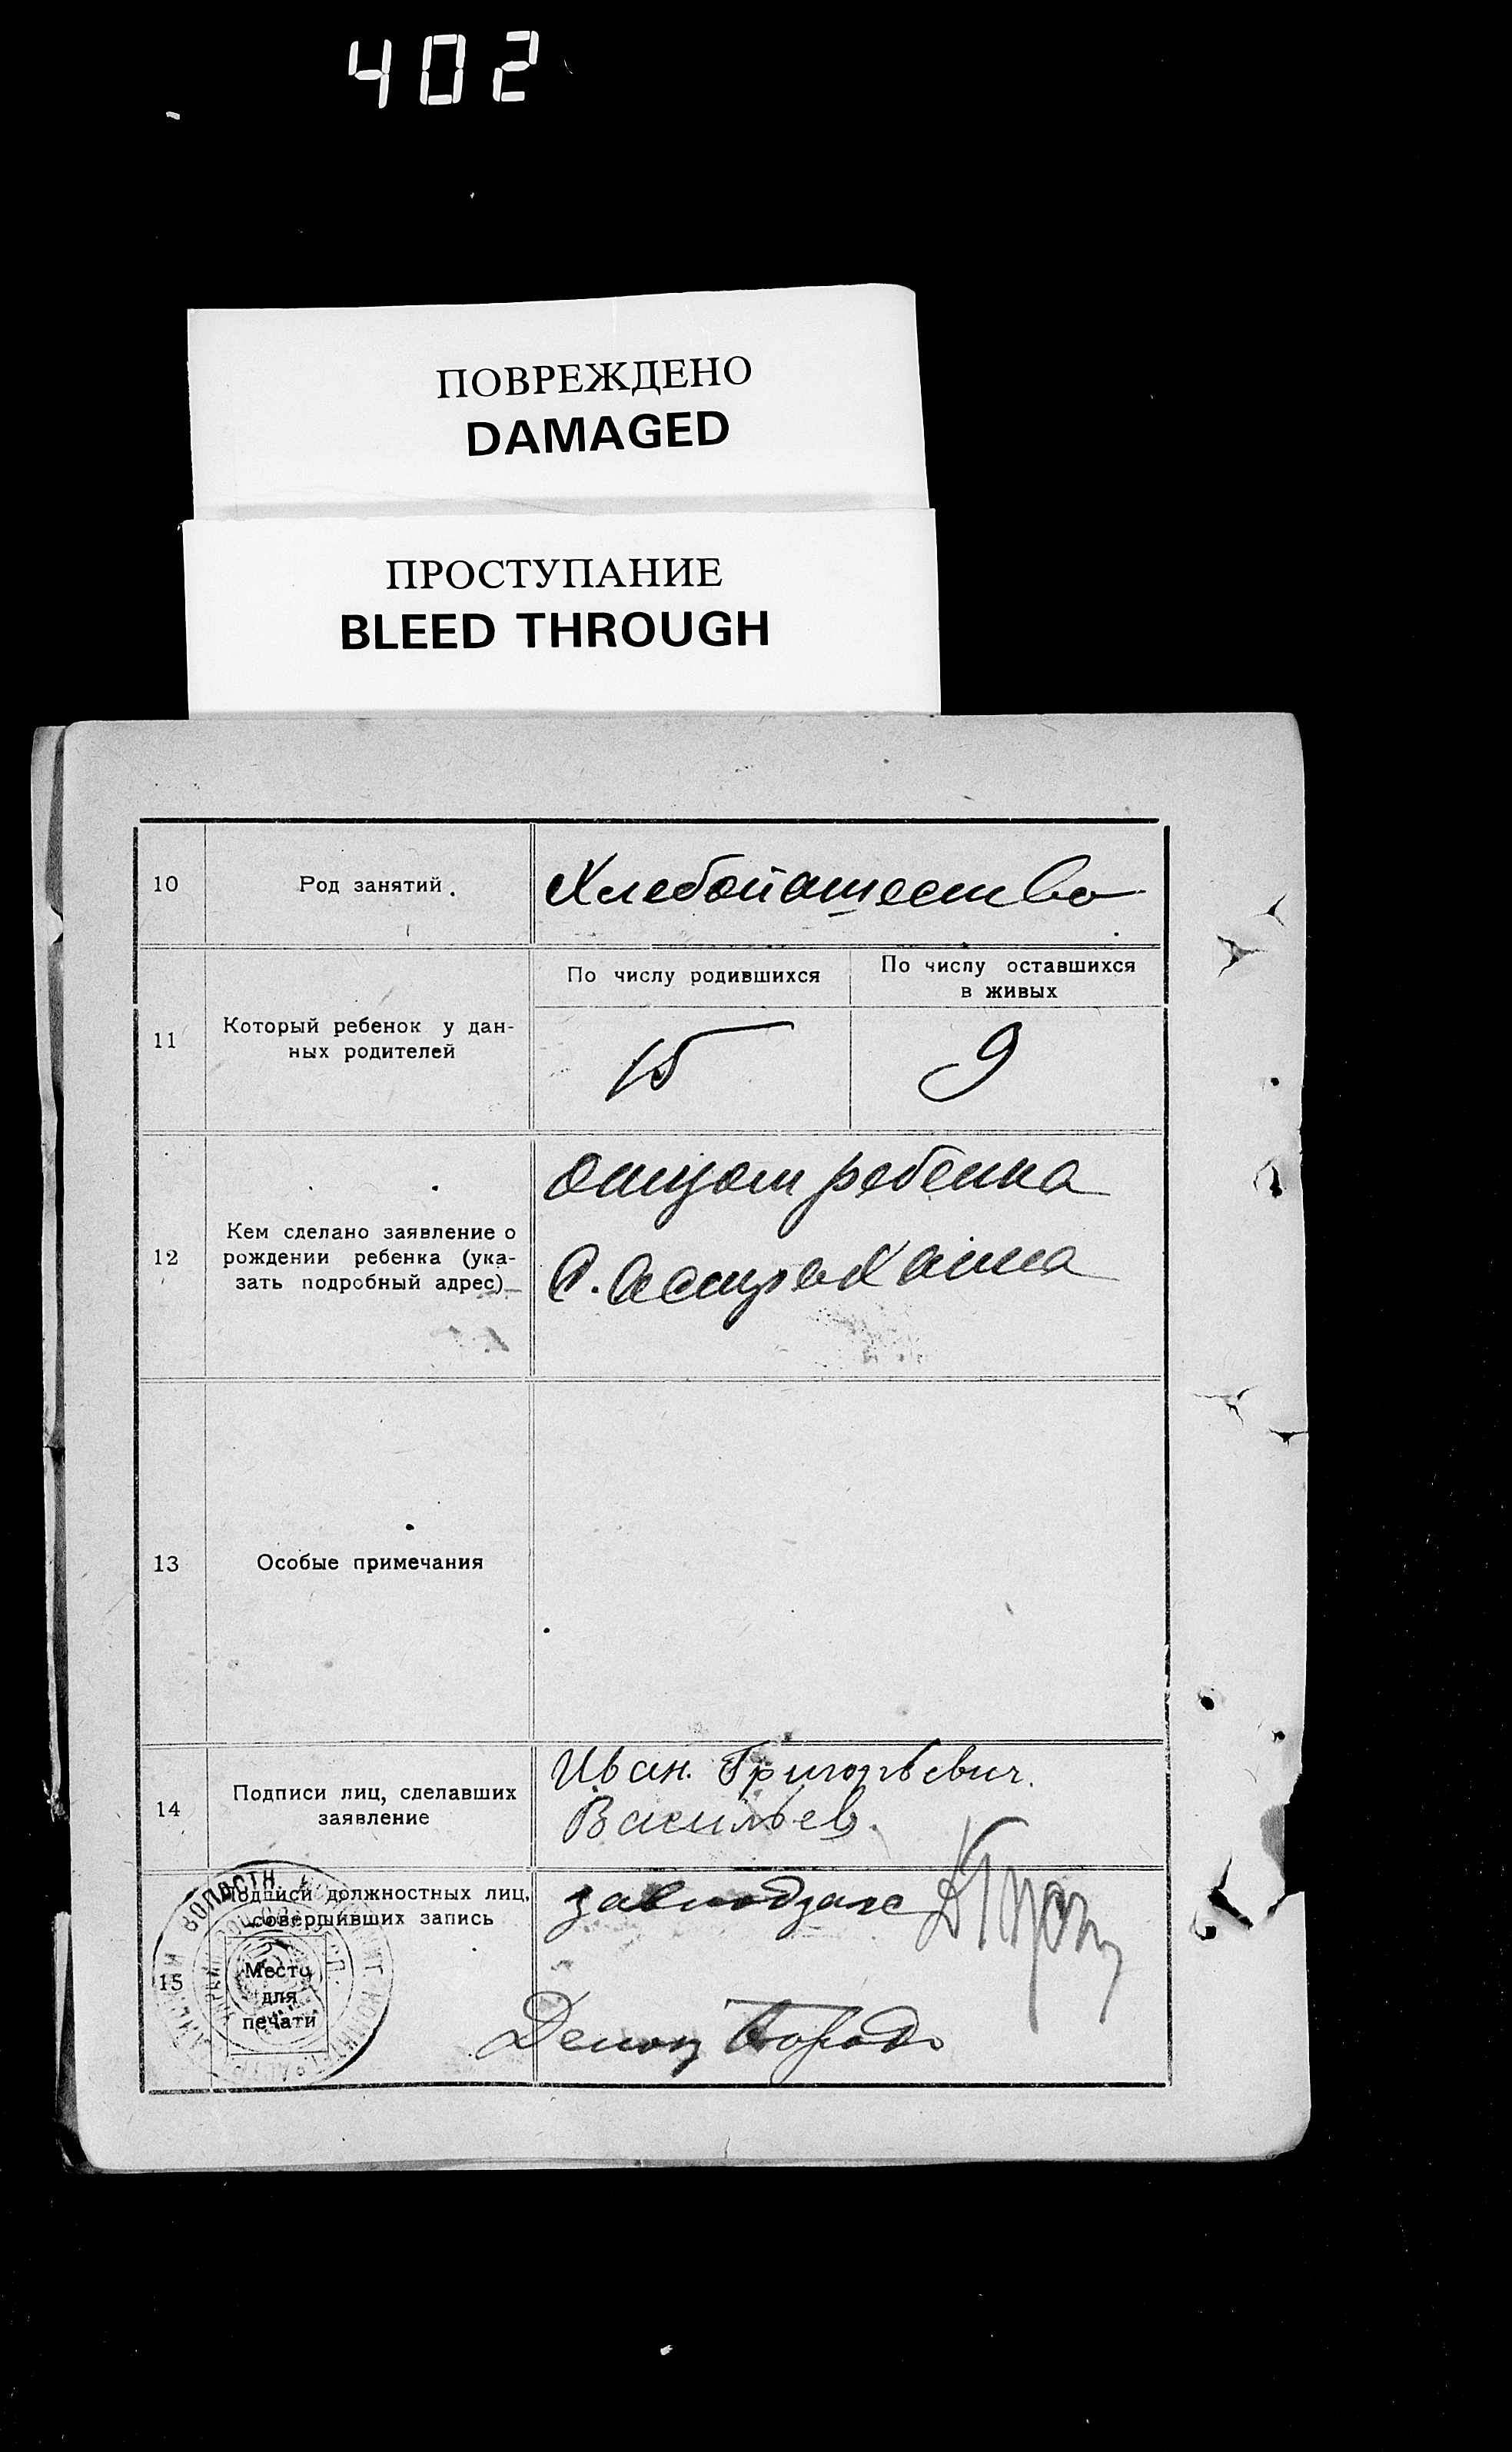 402
ПОВРЕЖДЕНО
DAMAGED
ПРОСТУПАНИЕ
BLEED THROUGH
10
Род занятий.
Хлебопашество
11
Который ребенок у дан-
ных родителей
По числу родившихся
По числу оставшихся
в живых
15
9
12
Кем сделано заявление о
рождении ребенка (ука-
зать подробный адрес)
отцом ребенка
С. Астраханка
13
Особые примечания
14
Подписи лиц, сделавших
заявление
Иван Григорьевич.
Васильев.
15
Подписи должностных лиц,
совершивших запись
Место
для
печати
ВОЛОСТН.